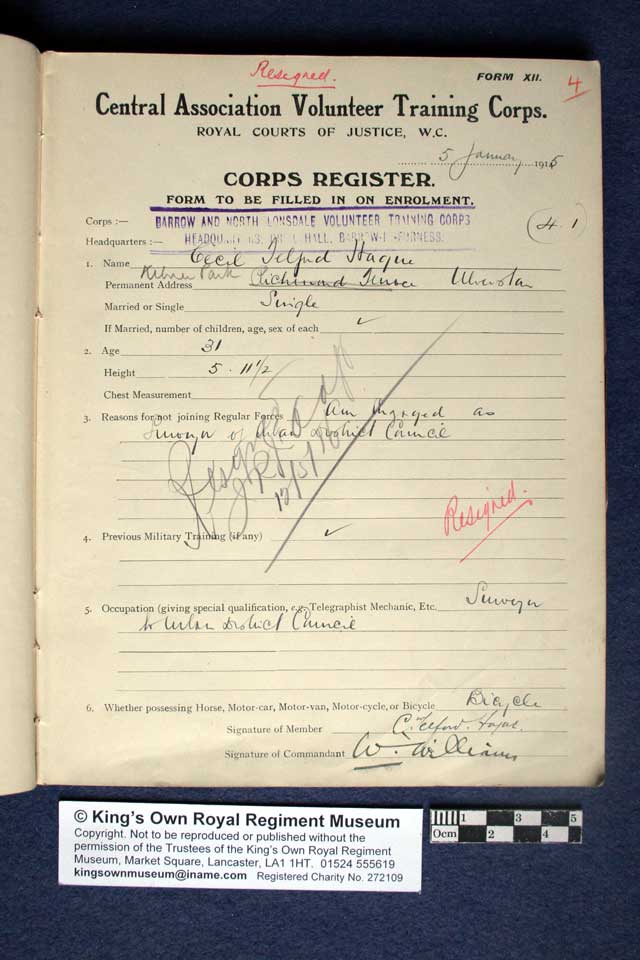 Resigned.
FORM XII.
4
Central Association Volunteer Training Corps.
ROYAL COURTS OF JUSTICE, W.C.
5 January 1915
CORPS REGISTER.
FORM TO BE FILLED IN ON ENROLMENT.
Corps :— BARROW AND NORTH LONSDALE VOLUNTEER TRAINING CORPS
4.1
Headquarters :— HALL, BARROW-
1. Name Cecil Telford Hague
Park
Permanent Address Richmond Terrace Ulverston
Married or Single Single
If Married, number of children, age, sex of each ✓
2. Age 31
Height 5 . 11 1/2
Chest Measurement
3. Reasons for not joining Regular Forces Am engaged as
Surveyor of Urban District Council
Resigned
Resigned.
4. Previous Military Training (if any) ✓
5. Occupation (giving special qualification, e.g. Telegraphist Mechanic, Etc. Surveyor
to Urban District Council
6. Whether possessing Horse, Motor-car, Motor-van, Motor-cycle, or Bicycle Bicycle
Signature of Member C. Telford. Hague.
Signature of Commandant W. Williams
© King's Own Royal Regiment Museum
Copyright. Not to be reproduced or published without the
permission of the Trustees of the King's Own Royal Regiment
Museum, Market Square, Lancaster, LA1 1HT. 01524 555619
kingsownmuseum@iname.com Registered Charity No. 272109
1 3 5
0cm 2 4